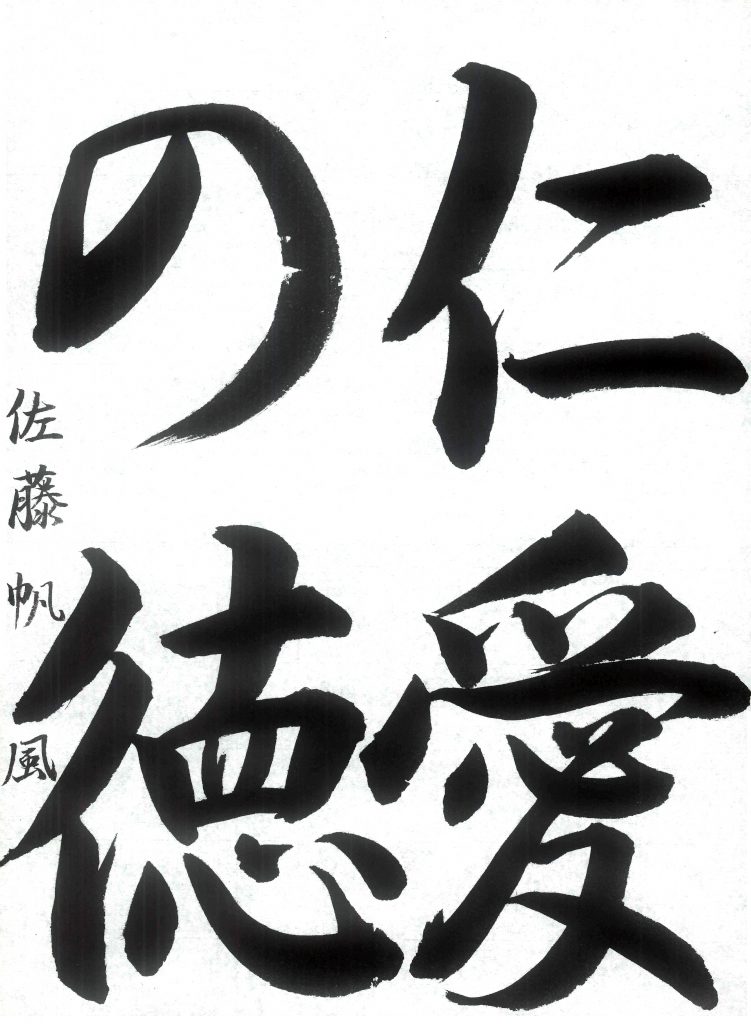 仁愛
の徳
佐藤帆風